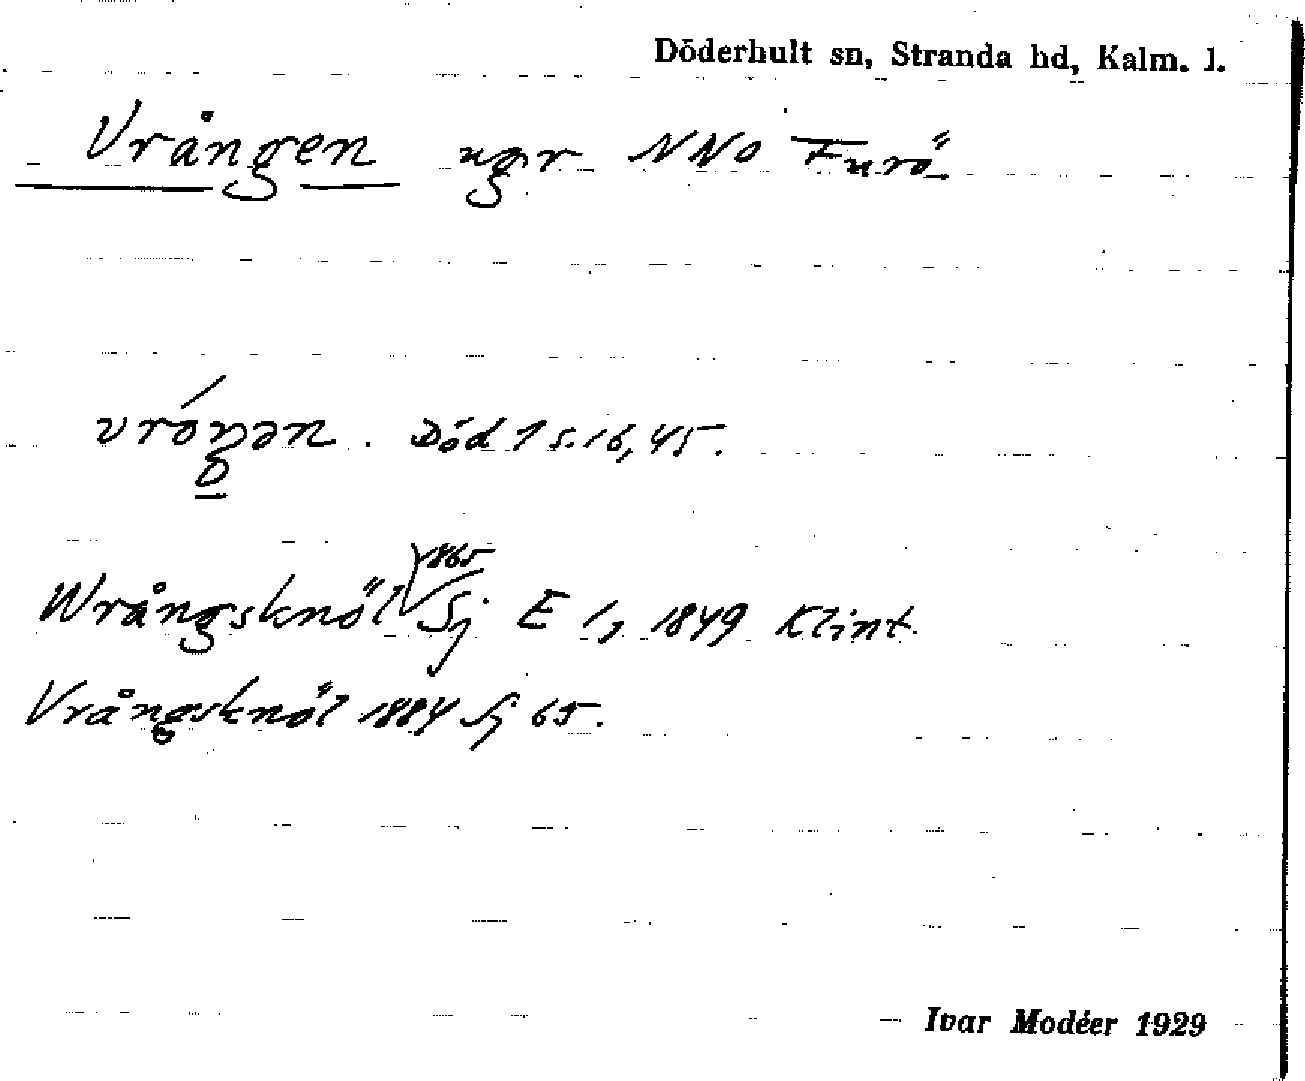 Döderhult sn, Stranda hd, Kalm. l.
Vrången ugr NNO Furö
vróŋən. Död 1 s. 16, 45.
1865
Wrångsknöl Sj E 1, 1849 Klint.
Vrångsknöl 1884 Sj 65.
Ivar Modéer 1929